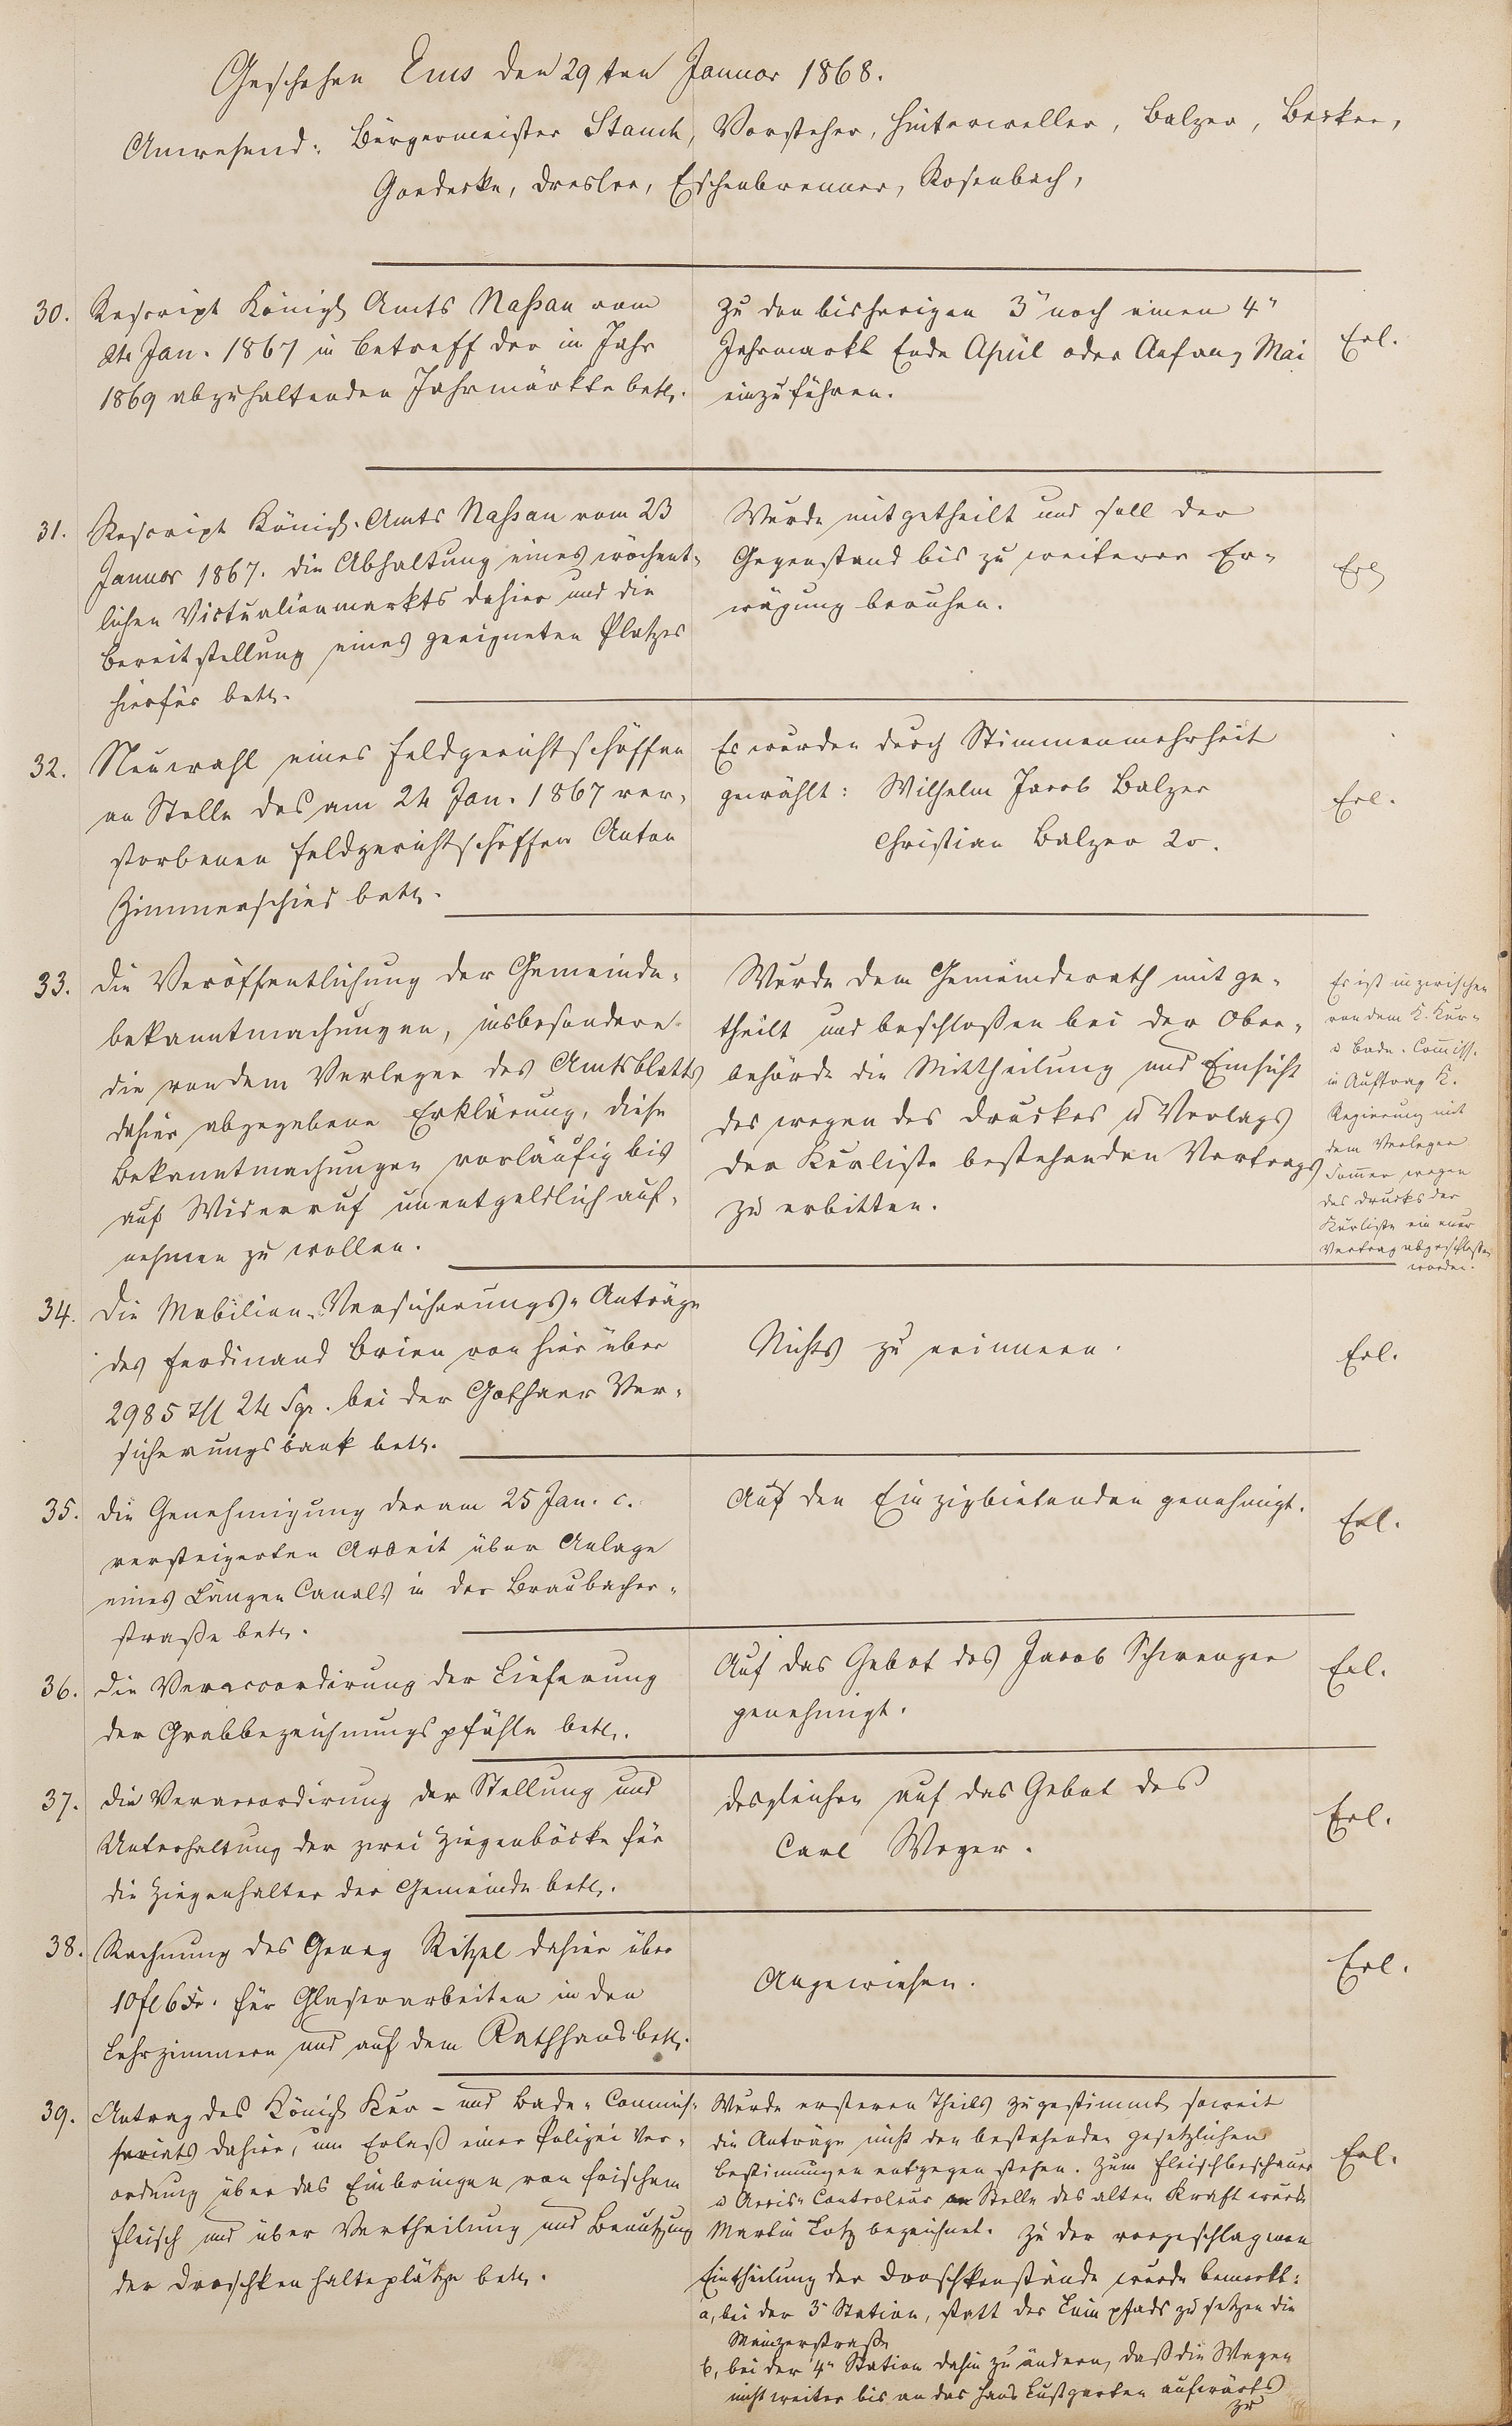 Geschehen Ems den 29ten Januar 1868.
Anwesend: Bürgermeister Stauch, Vorsteher, Hinterweller, Balzer, Becker,
Goedecke, Dresler, Eschenbrenner, Rosenbach,
30.
Rescript Königl Amts Naßau vom
24 Jan. 1867 in Betreff der in Jahr
1869 abzuhaltenden Jahrmärkte betr.
Zu den bisherigen 3" noch einen 4"
Jahrmarkt Ende April oder Anfang Mai
einzuführen.
Erl.
31.
Rescript Königl. Amts Naßau vom 23
Januar 1867. die Abhaltung eines wöchent-
lichen Victualienmarkts dahier und die
Bereitstellung eines geeigneten Platzes
hierfür betr.
Wurde mitgetheilt und soll der
Gegenstand bis zu weiterer Er-
wägung beruhen.
Erl
32.
Neuwahl eines Feldgerichtschöffen
an Stelle des am 24 Jan. 1867 ver-
storbenen Feldgerichtschöffen Anton
Zimmerschied betr.
Es wurden durch Stimmenmehrheit
gewählt: Wilhelm Jacob Balzer
Christian Balzer 2r.
Erl.
33.
Die Veröffentlichung der Gemeinde-
bekanntmachungen, insbesondere
die von dem Verleger des Amtsblatts
dahier abgegebene Erklärung, diese
Bekanntmachungen vorläufig bis
auf Widerruf unentgeldlich auf-
nehmen zu wollen.
Wurde dem Gemeinderath mit ge-
theilt und beschloßen bei der Ober-
behörde die Mittheilung und Einsicht
des wegen des Druckes u Verlags
der Kurliste bestehenden Vertrags
zu erbitten.
Es ist inzwischen
von dem K. Kur-
u Bade-Commiss.
in Auftrag K.
Regierung mit
dem Verleger
Sommer wegen
des Drucks der
Kurliste ein neuer
Vertrag abgeschloßen
worden.
34.
Die Mobilien-Versicherungs-Anträge
des Ferdinand Brien von hier über
2985 Thl 24 Sgr. bei der Gothaer Ver-
sicherungsbank betr.
Nichts zu erinnern.
Erl.
35.
Die Genehmigung der am 25 Jan. c.
versteigerten Arbeit über Anlage
eines Längen Canals in der Braubacher-
straße betr.
Auf den Einzigbietenden genehmigt.
Erl.
36.
Die Veraccordirung der Lieferung
der Grabbezeichnungspfähle betr.
Auf das Gebot des Jacob Schwenger
genehmigt.
Erl.
37.
Die Veraccordirung der Stellung und
Unterhaltung der zwei Ziegenböcke für
die Ziegenhalter der Gemeinde betr.
desgleichen auf das Gebot des
Carl Weger.
Erl.
38.
Rechnung des Georg Ritzel dahier über
10 fl 6 Kr. für Glaserarbeiten in den
Lehrzimmern und auf dem Rathhaus betr.
Angewiesen.
Erl.
39.
Antrag des Königl Kur- und Bade-Commis-
sariats dahier, um Erlaß einer Polizei Ver-
ordnung über das Einbringen von frischem
Fleisch und über Vertheilung und Benutzung
der Droschkenhalteplätze betr.
Wurde ersteren Theils zugestimmt soweit
die Anträge nicht den bestehenden gesetzlichen
Bestimmungen entgegen stehen. Zum Fleischbeschauer
u Accis-Controleur an Stelle des alten Kraft wurde
Martin Lotz bezeichnet. Zu der vorgeschlagenen
Eintheilung der Droschkenstände wurde bemerkt:
a, bei der 3" Station, statt des Leinpfads zu setzen die
Mainzerstraße
b, bei der 4" Station dahin zu ändern, daß die Wagen
nicht weiter bis an das Haus Lustgarten aufwärts
zu
Erl.